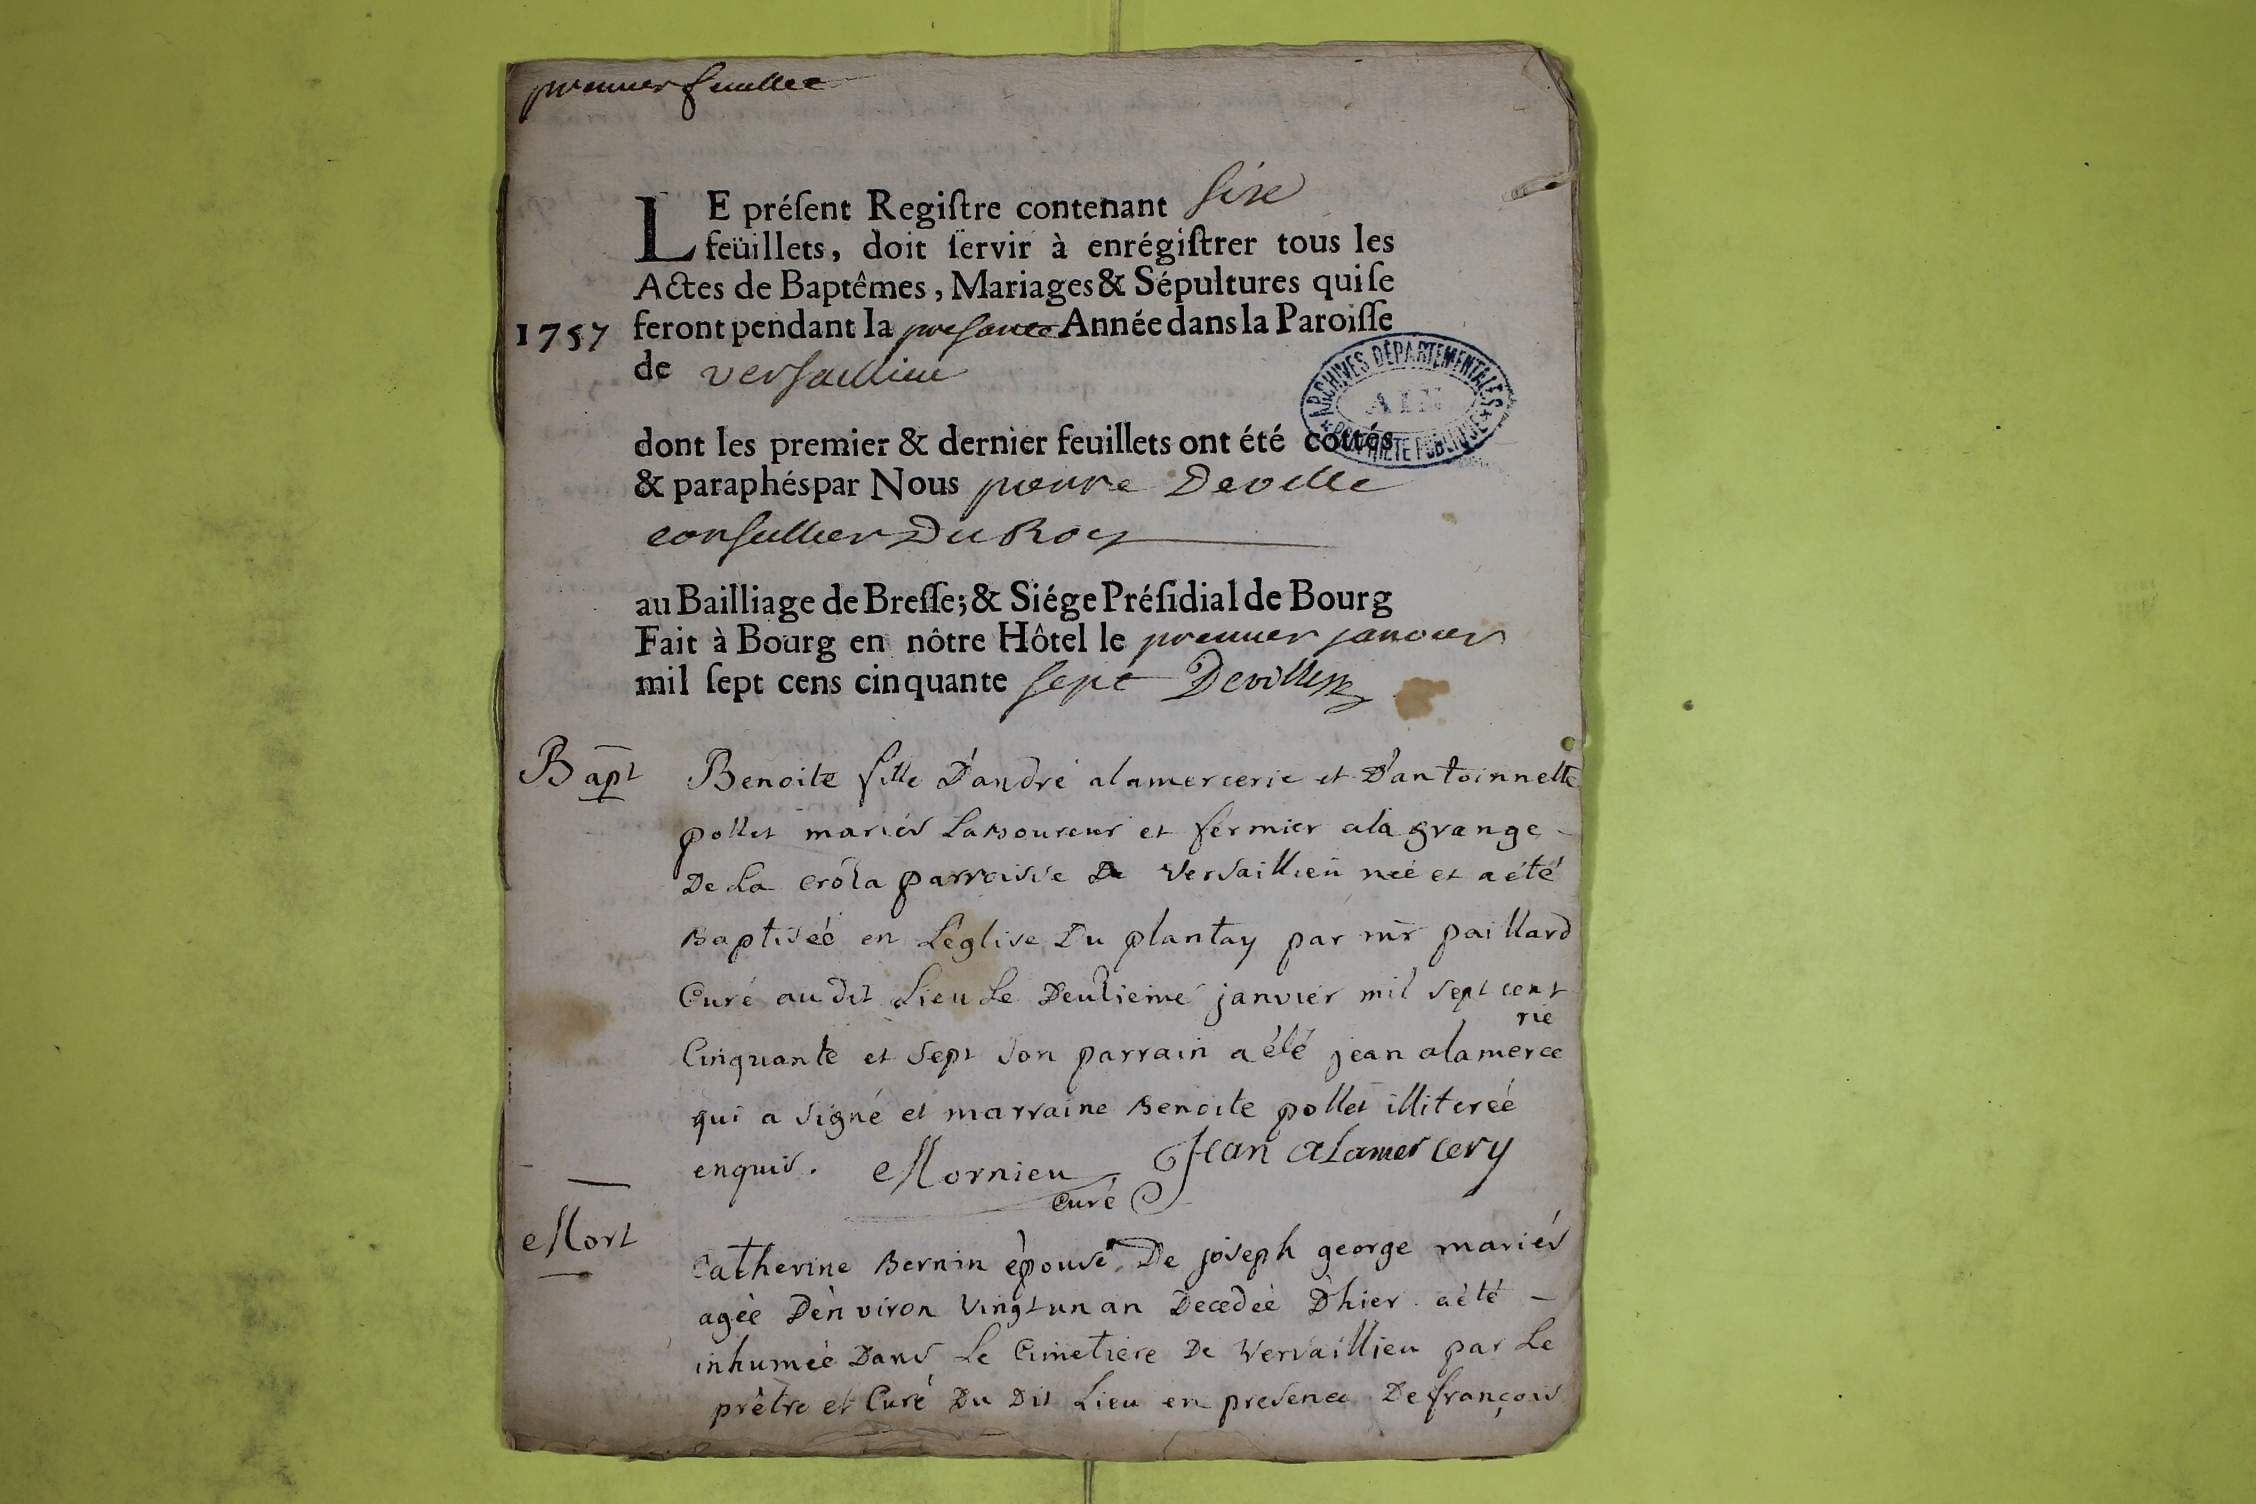 premier feuillet
LE préſent Regiſtre contenant sixe
feüillets, doit ſervir à enrégiſtrer tous les
Actes de Baptêmes, Mariages & Sépultures qui ſe
1757 feront pendant la presante Année dans la Paroiſſe
de versaillieu
ARCHIVES DÉPARTEMENTALES
AIN
* PROPRIÉTÉ PUBLIQUE *
dont les premier & dernier feuillets ont été cottés
& paraphés par Nous pierre Deville
conseillier Du Roy
au Bailliage de Breſſe; & Siége Préſidial de Bourg
Fait à Bourg en nôtre Hôtel le premier janvier
mil ſept cens cinquante sept Deville
Bapt Benoite fille D'andré alamercerie et D'antoinnette
pollet mariés Laboureur et fermier ala grange
De La crôla parroisse De versaillieu née et a été
Baptisée en L'église Du plantay par mr paillard
Curé au dit Lieu Le Deuxieme janvier mil sept cent
rie
Cinquante et Sept Son parrain a été jean alamerce
qui a signé et marraine Benoite pollet illiterée
enquis. Mornieu Jean alamercery
Curé
Mort Catherine Bernin épouse De joseph george mariés
agée D'environ vingt un an Decedée D'hier a été
inhumée Dans Le Cimetiere De Versaillieu par Le
prêtre et Curé Du Dit Lieu en presence De françois